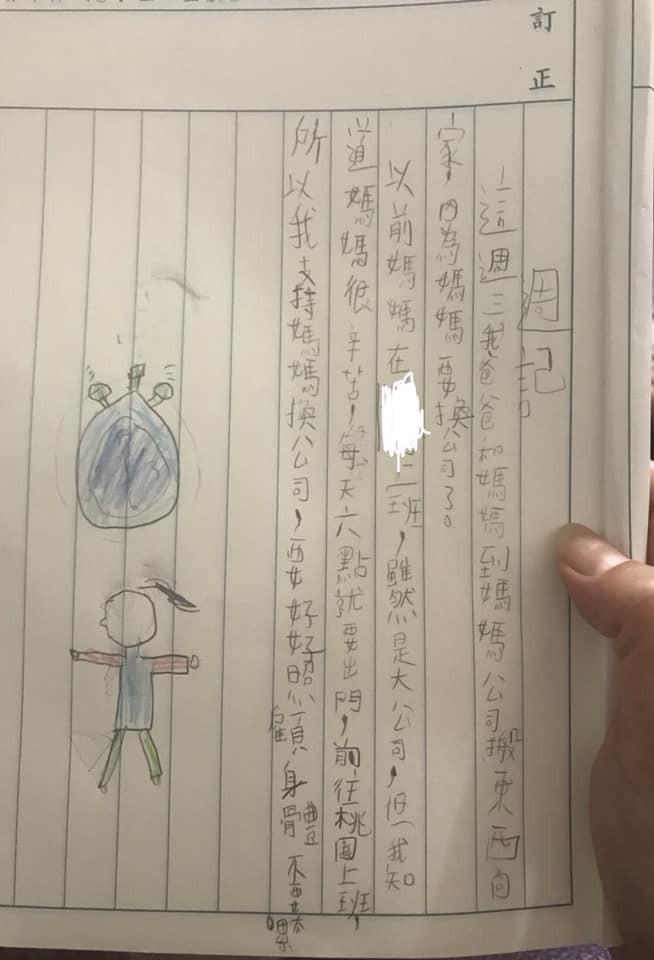 訂正
週記
這週三我爸爸和媽媽到媽媽公司搬東西回
家,因為媽媽要換公司了。
以前媽媽在上班,雖然是大公司,但我知
道媽媽很辛苦,每天六點就要出門,前往桃園上班,
所以我支持媽媽換公司,要好好照顧身體不要太累。